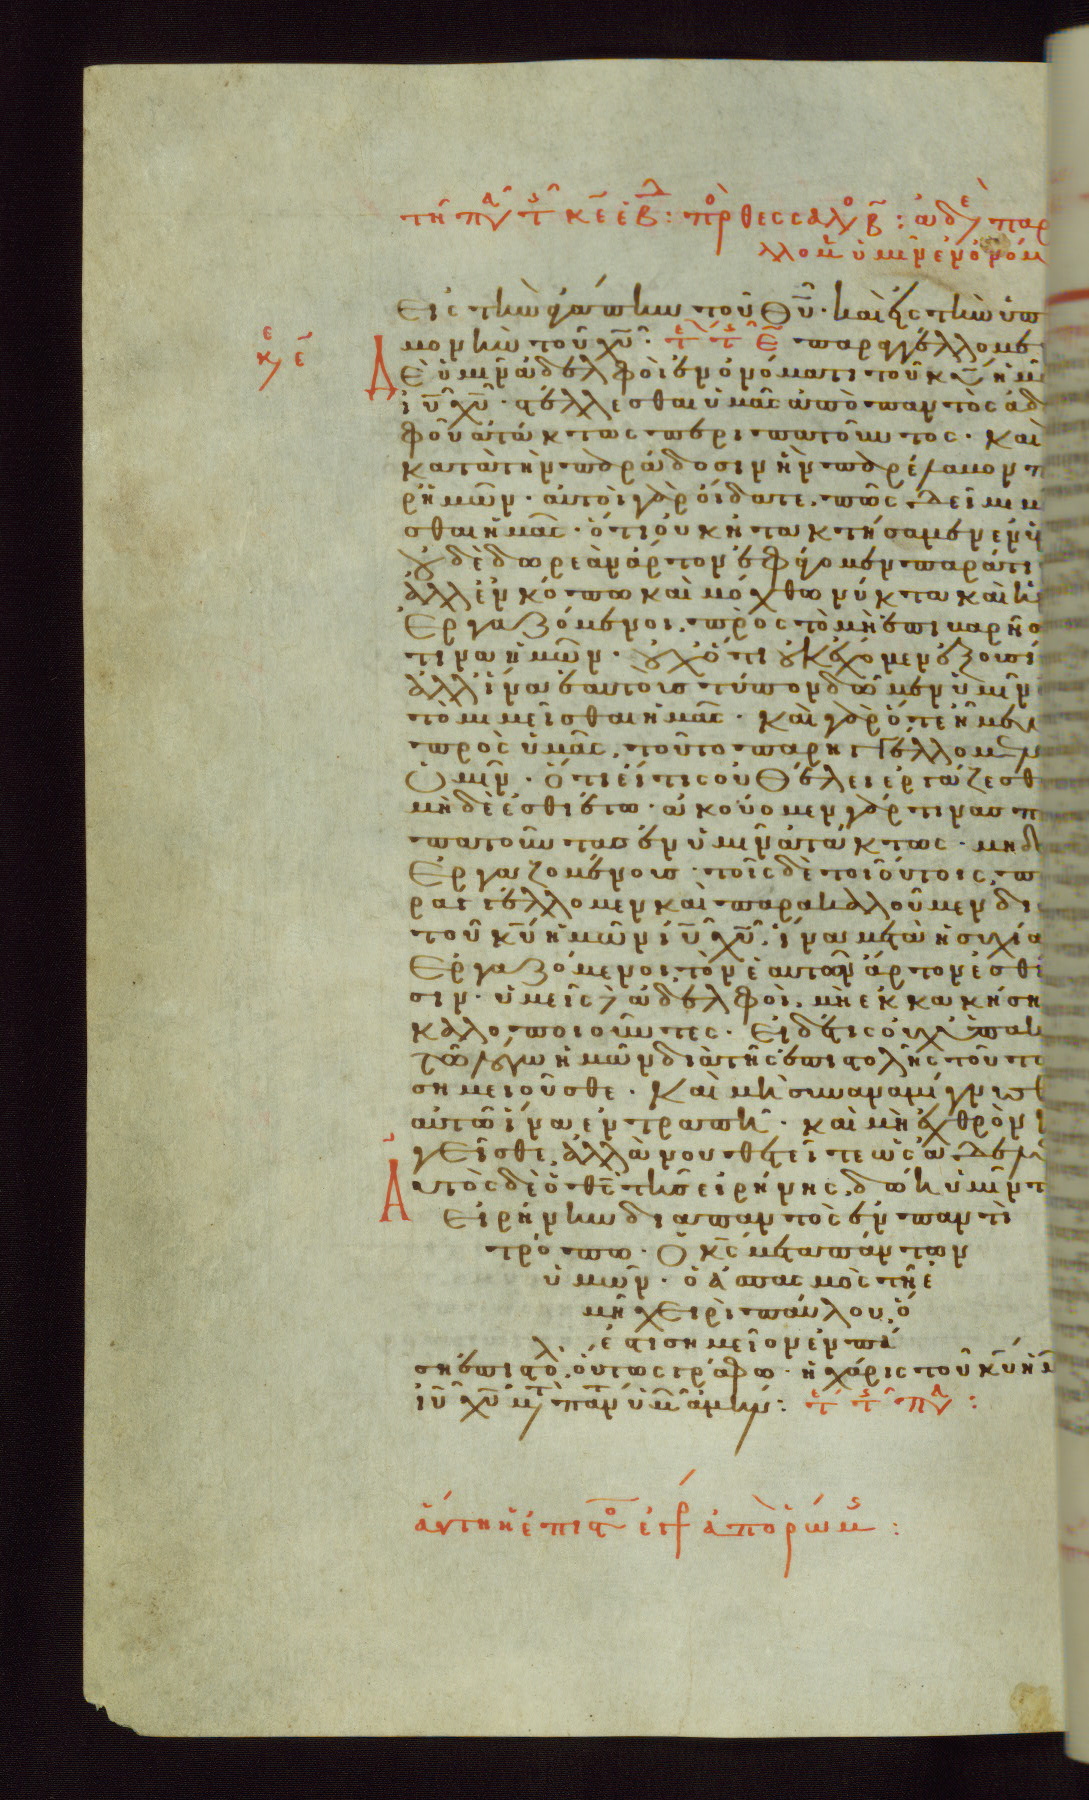 τῆ πα τ κε ἑβ: πρ θεσσαλο β: ἀδε παρ
λλομ ὑμῖν ἐν ὀνόμ
εἰς τὴν ἀγάπην τοῦ θυ· καὶ εἰς τὴν ὑπ
μονὴν τοῦ χυ· τ τ ε παραγγέλλομε
κ ε
ὲ ὑμῖν ἀδελφοὶ ἐν ὀνόματι τοῦ κυ ἡμ
ιυ χυ· στέλλεσθαι ὑμᾶς ἀπὸ παντὸς ἀδ
φοῦ ἀτάκτως περιπατοῦντος· καὶ
κατὰ τὴν παράδοσιν ἣν παρέλαβον π
ρ ἡμῶν· αὐτοὶ γὰρ οἴδατε, πῶς δεῖ μιμ
σθαι ἡμᾶς· ὅτι οὐκ ἠτακτήσαμεν ἐν ὑ
οὐδὲ δωρεὰν ἄρτον ἐφάγομεν παρά τι
ἀλλ' ἐν κόπω καὶ μόχθω νύκτα καὶ ἡ
ἐργαζόμενοι, πρὸς τὸ μὴ ἐπιβαρῆσ
τινα ἡμῶν· οὐχ ὅτι οὐκ ἔχομεν ἐξουσί
ἀλλ' ἵνα ἑαυτοὺς τύπον δῶμεν ὑμῖν
τὸ μιμεῖσθαι ἡμᾶς· καὶ γὰρ ὅτε ἦμεν
πρὸς ὑμᾶς, τοῦτο παρηγγέλλομεν
ὑμῖν· ὅτι εἴ τις οὐ θέλει ἐργάζεσθ
μηδὲ ἐσθιέτω· ἀκούομεν γάρ τινας π
πατοῦντας ἐν ὑμῖν ἀτάκτως· μηδ
ἐργαζομένους· τοῖς δὲ τοιούτοις, π
ραγγέλλομεν καὶ παρακαλοῦμεν δι
τοῦ κυ ἡμῶν ιυ χυ, ἵνα μετὰ ἡσυχία
ἐργαζόμενοι, τὸν ἑαυτῶν ἄρτον ἐσθί
σιν· ὑμεῖς δὲ ἀδελφοί, μὴ ἐκκακήση
καλοποιοῦντες· εἰ δέ τις οὐχ ὑπακ
τῶ λόγω ἡμῶν διὰ τῆς ἐπιστολῆς τοῦτο
σημειοῦσθε· καὶ μὴ συναναμίγνυσθ
αὐτῶ ἵνα ἐντραπῆ· καὶ μὴ ἐχθρὸν
γεῖσθε, ἀλλὰ νουθετεῖτε ὡς ἀδελφ
Αὐτὸς δὲ ὁ θς τῆς εἰρήνης, δώη ὑμῖν τ
εἰρήνην διαπαντὸς ἐν παντὶ
τρόπω· ὁ κς μετὰ πάντων
ὑμῶν· ὁ ἀσπασμὸς τῆ ἐ
μῆ χειρὶ παύλου, ὅ
ἐστι σημεῖον ἐν πά
ση ἐπιστολ, οὕτως γράφω· ἡ χάρις τοῦ κυ ἡμ
ιυ χυ μτ παν ὑμ ἀμήν: τ τ πα:
αὕτη ἡ ἐπιστο ἐγρ ἀπὸ ῥώμ: